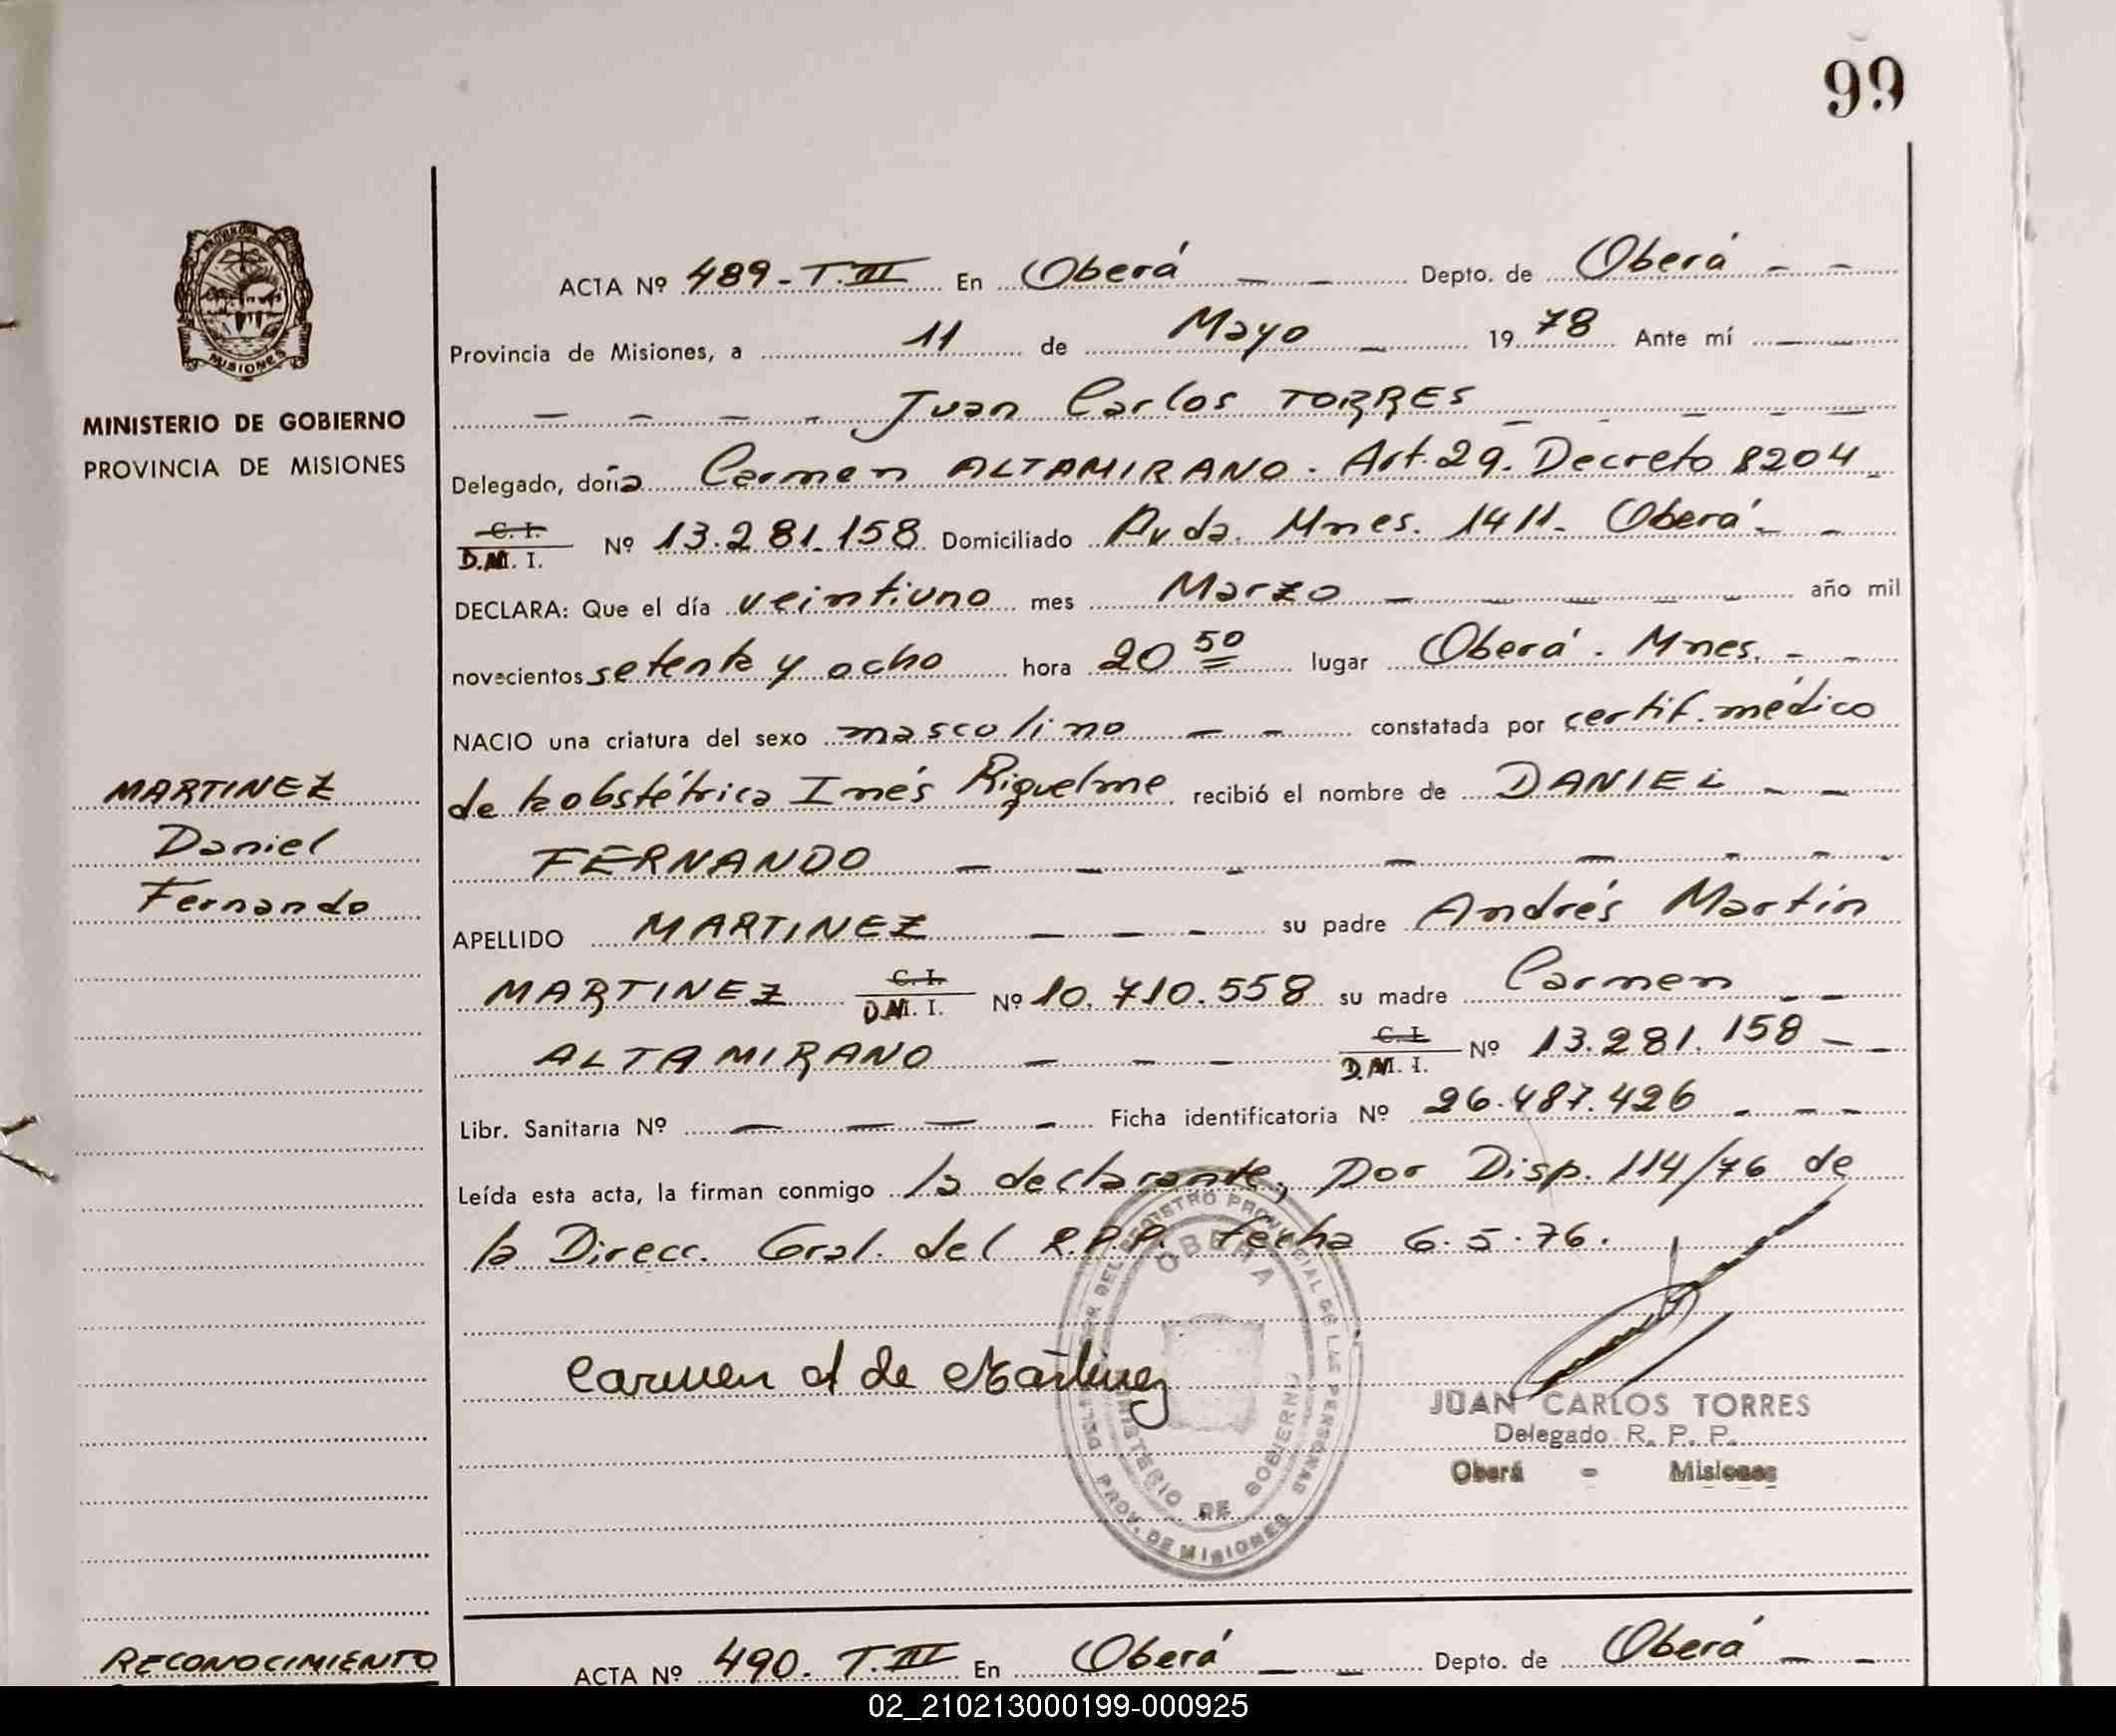 99
PROVINCIA DE
MISIONES
MINISTERIO DE GOBIERNO
PROVINCIA DE MISIONES
MARTINEZ
Daniel
Fernando
ACTA Nº 489-T.III En Oberá Depto. de Oberá
Provincia de Misiones, a 11 de Mayo 1978 Ante mí
Juan Carlos TORRES
Delegado, doña Carmen ALTAMIRANO. Art. 29. Decreto 8204
C. I.
D.N. I. Nº 13.281.158 Domiciliado Avda. Mnes. 1411- Oberá
DECLARA: Que el día veintiuno mes Marzo año mil
novecientos setenta y ocho hora 20 50 lugar Oberá. Mnes.
NACIO una criatura del sexo masculino constatada por certif. médico
de la obstétrica Inés Riquelme recibió el nombre de DANIEL
FERNANDO
APELLIDO MARTINEZ su padre Andrés Martín
MARTINEZ C. I. D.N. I. Nº 10.710.558 su madre Carmen
ALTAMIRANO C. I. D.N. I. Nº 13.281.158
Libr. Sanitaria Nº Ficha identificatoria Nº 26.487.426
Leída esta acta, la firman conmigo la declarante, por Disp. 114/76 de
la Direcc. Gral. del R.P.P. fecha 6.5.76.
Carmen A de Martinez
DEL REGISTRO PROVINCIAL DE LAS PERSONAS
OBERA
MINISTERIO DE GOBIERNO
PROV. DE MISIONES
JUAN CARLOS TORRES
Delegado R. P. P.
Oberá - Misiones
RECONOCIMIENTO
ACTA Nº 490. T.III En Oberá Depto. de Oberá
02_210213000199-000925